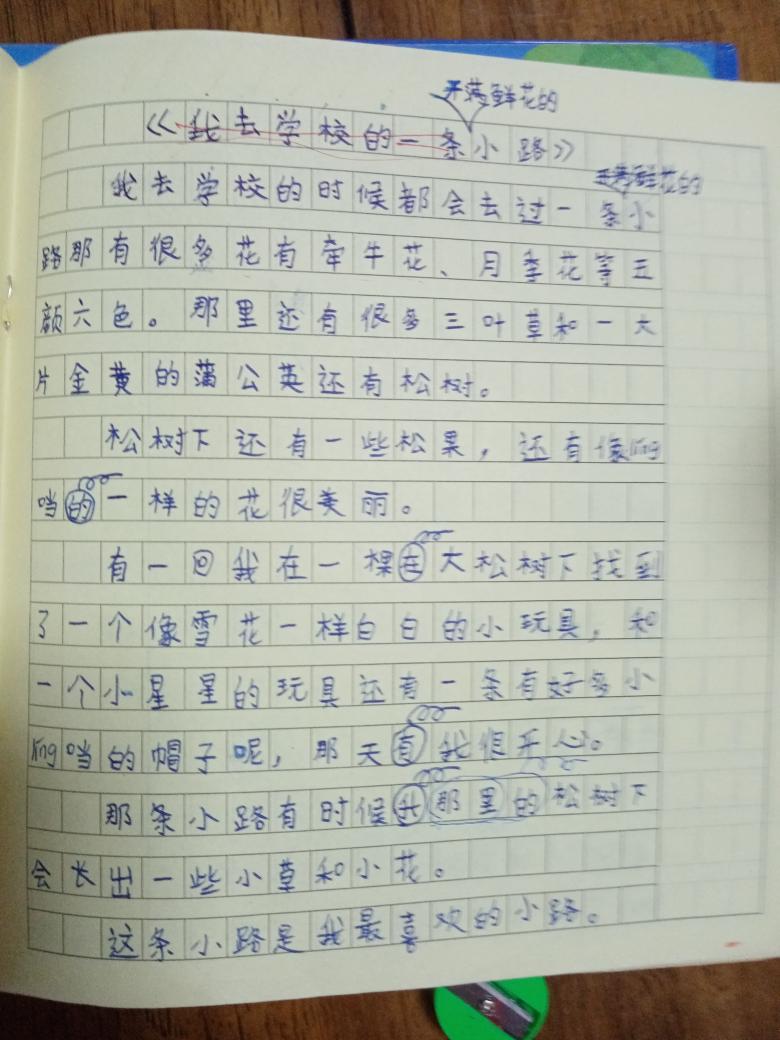 开满鲜花的
《我去学校的一条小路》
开满鲜花的
我去学校的时候都会去过一条小
路那有很多花有牵牛花、月季花等五
颜六色。那里还有很多三叶草和一大
片金黄的蒲公英还有松树。
松树下还有一些松果，还有像ling
当的一样的花很美丽。
有一回我在一棵在大松树下找到
了一个像雪花一样白白的小玩具，和
一个小星星的玩具还有一条有好多小
ling当的帽子呢，那天有我很开心。
那条小路有时候在那里的松树下
会长出一些小草和小花。
这条小路是我最喜欢的小路。